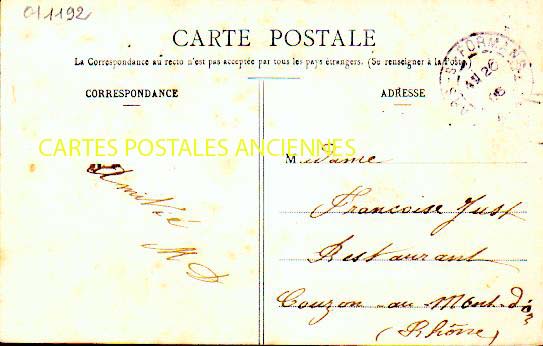 011192
CARTE POSTALE
La Correspondance au recto n'est pas acceptée par tous les pays étrangers. (Se renseigner à la Poste)
CORRESPONDANCE
ADRESSE
CARTES POSTALES ANCIENNES
Amitié
M D
Madame
Francoise Just
Restaurant
Couzon au Mont d'or
(Rhône)